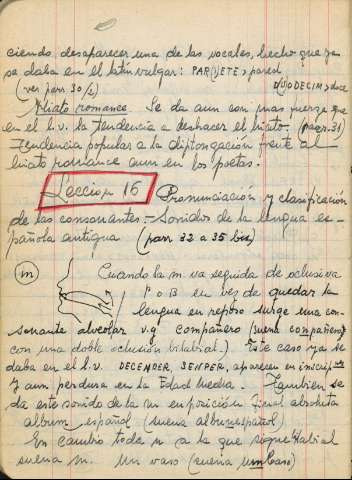 ciendo, desaparecer una de las vocales, hecho que ya
se daba en el latín vulgar: PAR(I)ETE > pared
(ver pars 30/2) D(U)ODECIM > doce
Hiato romance. Se da aun con mas fuerza que
en el l.v. la tendencia a deshacer el hiato. (pagrs. 31)
Tendencia popular a la diptongación frente al
hiato romance aun en los poetas.
Lección 16 Pronunciación y clasificación
de las consonantes.- Sonidos de la lengua es-
pañola antigua (parr 32 a 35 bis)
m Cuando la m va seguida de oclusiva
P o B en vez de quedar la
lengua en reposo surge una con-
sonante alveolar v.g. compañero (suena companỹero
con una doble oclusión bilabial.) Este caso ya se
daba en el l.v. DECEMBER, SEMPER, aparecen en inscrip
Y aun perdura en la Edad Media. Tambien se
da este sonido de la n en posición final absoluta
album español (suena albunespañol)
En cambio toda n a la que sigue labial
suena m. Un vaso (suena umbaso)